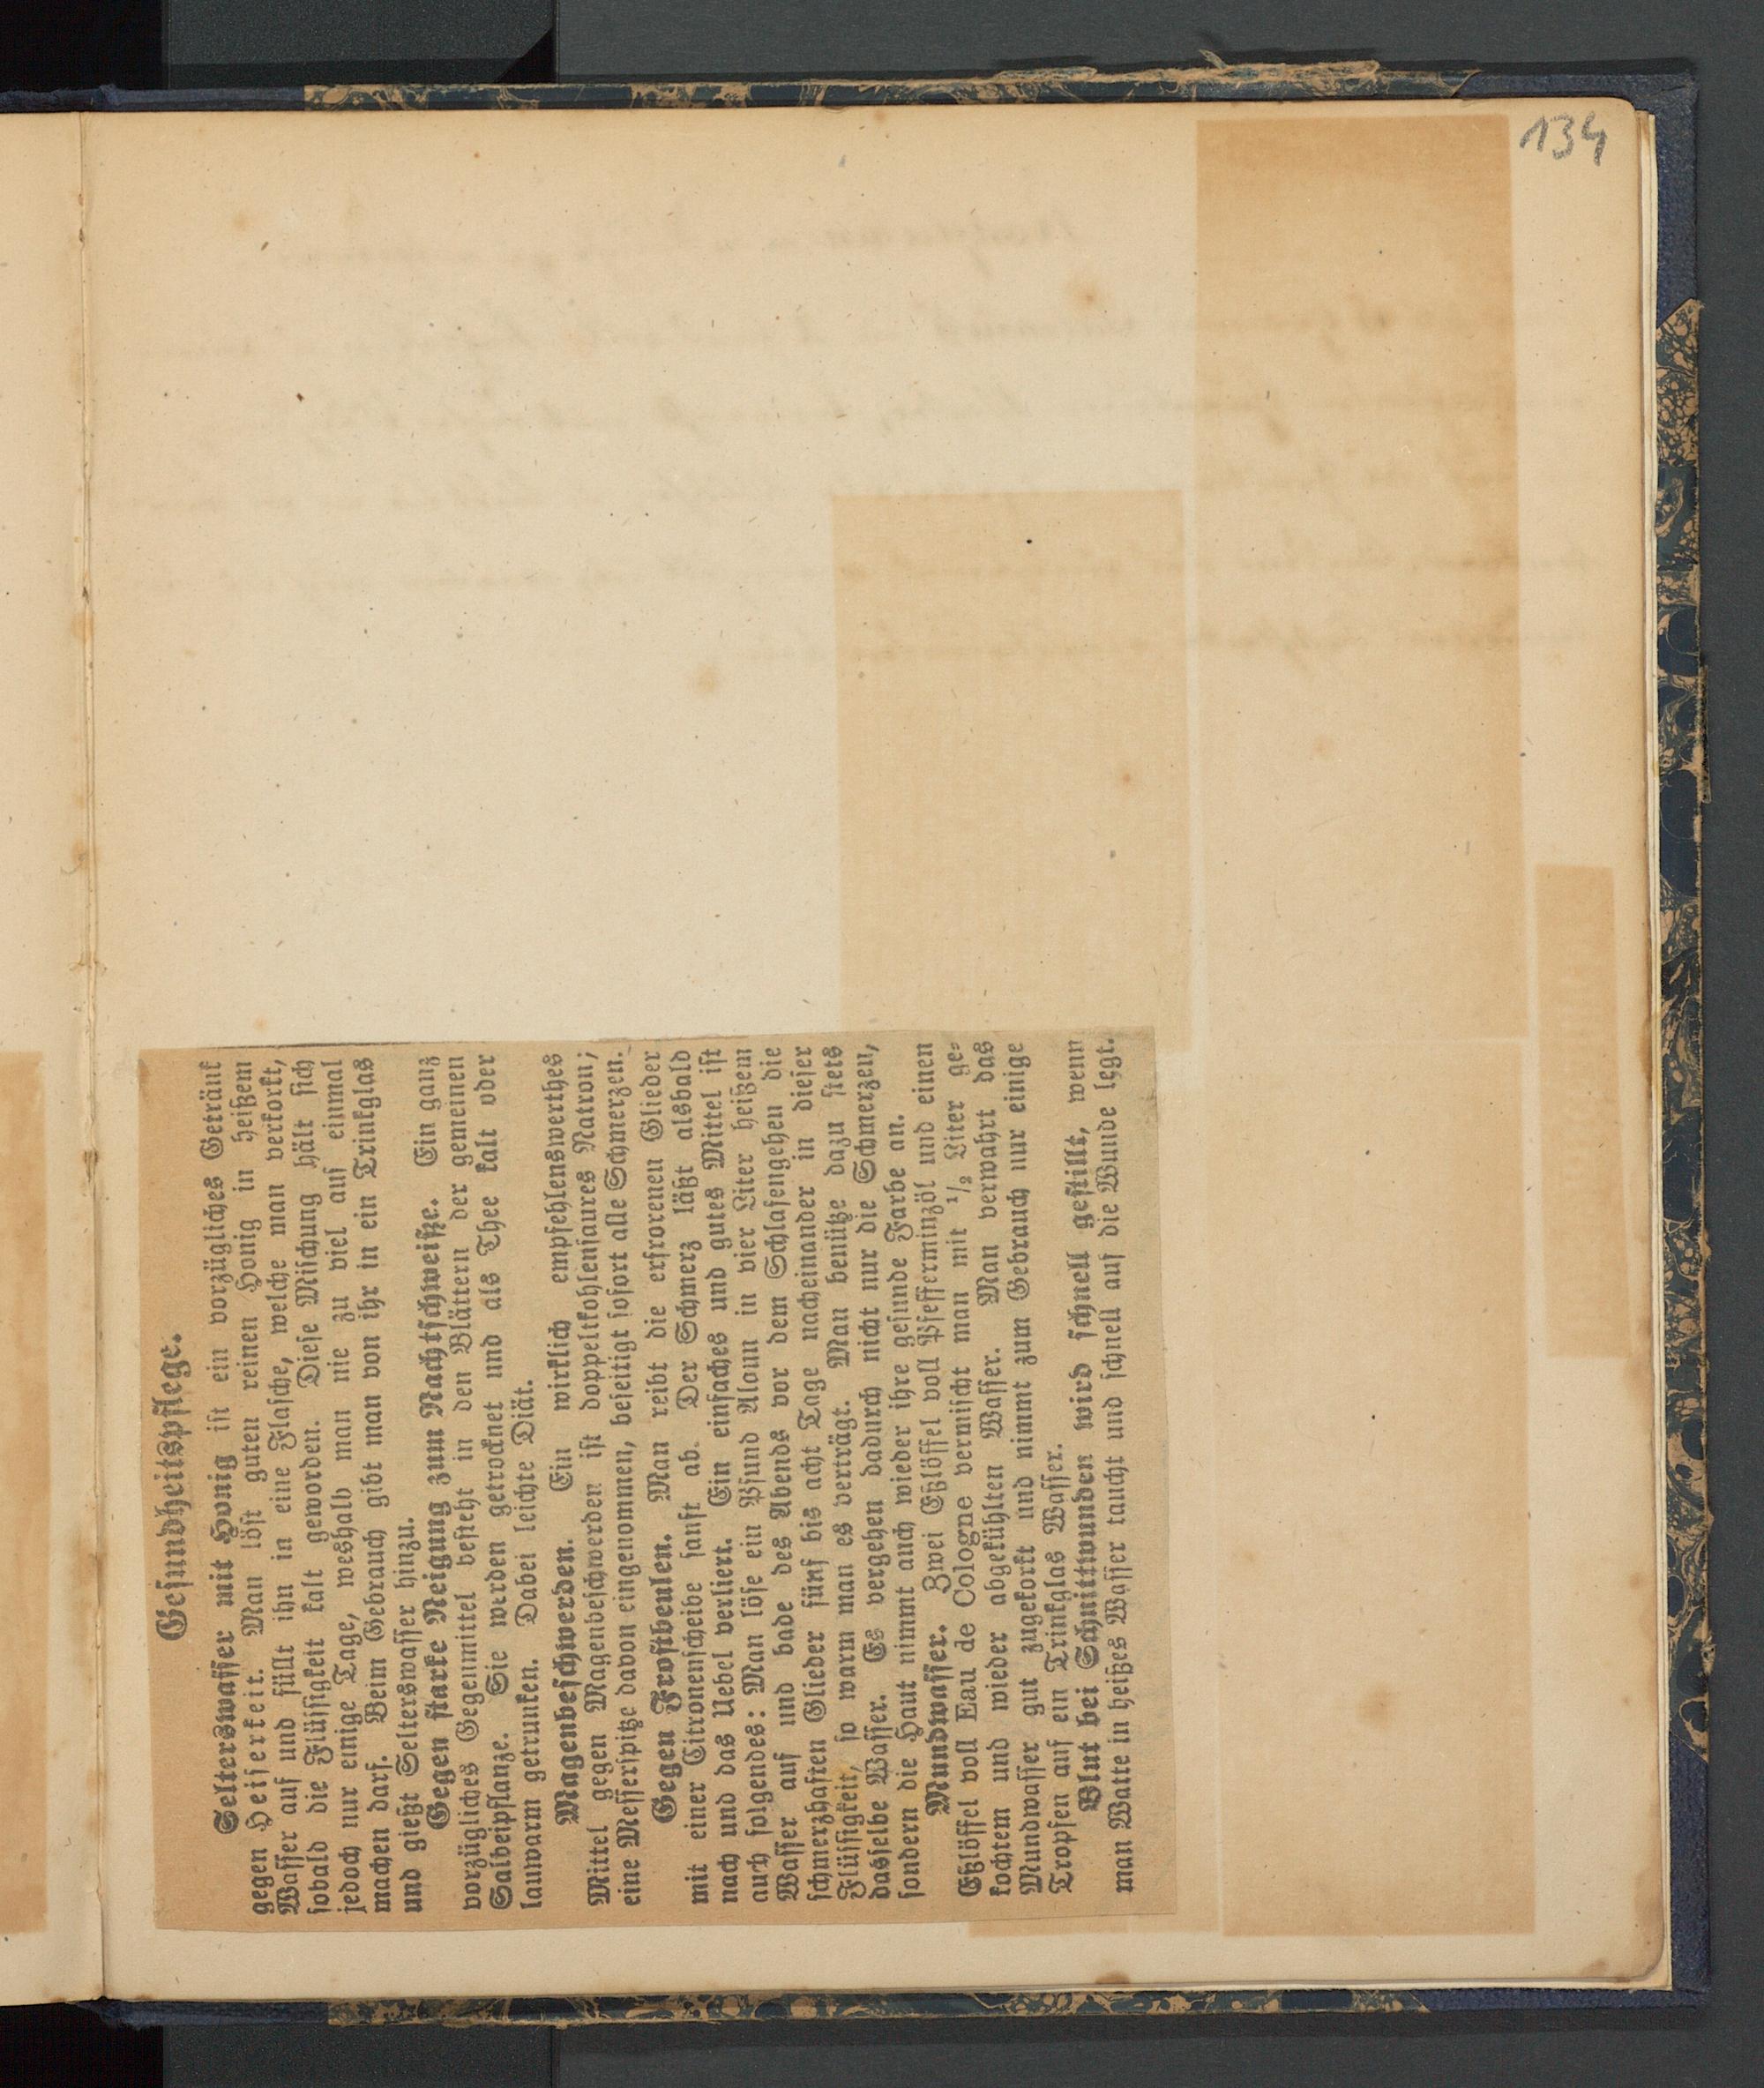 134
Gesundheitspflege.
Selterswasser mit Honig ist ein vorzügliches Getränk
gegen Heiserkeit. Man löst guten reinen Honig in heißem
Wasser auf und füllt ihn in eine Flasche, welche man verkorkt,
sobald die Flüssigkeit kalt geworden. Diese Mischung hält sich
jedoch nur einige Tage, weshalb man nie zu viel auf einmal
machen darf. Beim Gebrauch gibt man von ihr in ein Trinkglas
und gießt Selterswasser hinzu.
Gegen starke Neigung zum Nachtschweiße. Ein ganz
vorzügliches Gegenmittel besteht in den Blättern der gemeinen
Salbeipflanze. Sie werden getrocknet und als Thee kalt oder
lauwarm getrunken. Dabei leichte Diät.
Magenbeschwerden. Ein wirklich empfehlenswerthes
Mittel gegen Magenbeschwerden ist doppeltkohlensaures Natron;
eine Messerspitze davon eingenommen, beseitigt sofort alle Schmerzen.
Gegen Frostbeulen. Man reibt die erfrorenen Glieder
mit einer Citronenscheibe sanft ab. Der Schmerz läßt alsbald
nach und das Uebel verliert. Ein einfaches und gutes Mittel ist
auch folgendes: Man löse ein Pfund Alaun in vier Liter heißem
Wasser auf und bade des Abends vor dem Schlafengehen die
schmerzhaften Glieder fünf bis acht Tage nacheinander in dieser
Flüssigkeit, so warm man es verträgt. Man benütze dazu stets
dasselbe Wasser. Es vergehen dadurch nicht nur die Schmerzen,
sondern die Haut nimmt auch wieder ihre gesunde Farbe an.
Mundwasser. Zwei Eßlöffel voll Pfefferminzöl und einen
Eßlöffel voll Eau de Cologne vermischt man mit 1/2 Liter ge-
kochtem und wieder abgekühlten Wasser. Man verwahrt das
Mundwasser gut zugekorkt und nimmt zum Gebrauch nur einige
Tropfen auf ein Trinkglas Wasser.
Blut bei Schnittwunden wird schnell gestillt, wenn
man Watte in heißes Wasser taucht und schnell auf die Wunde legt.